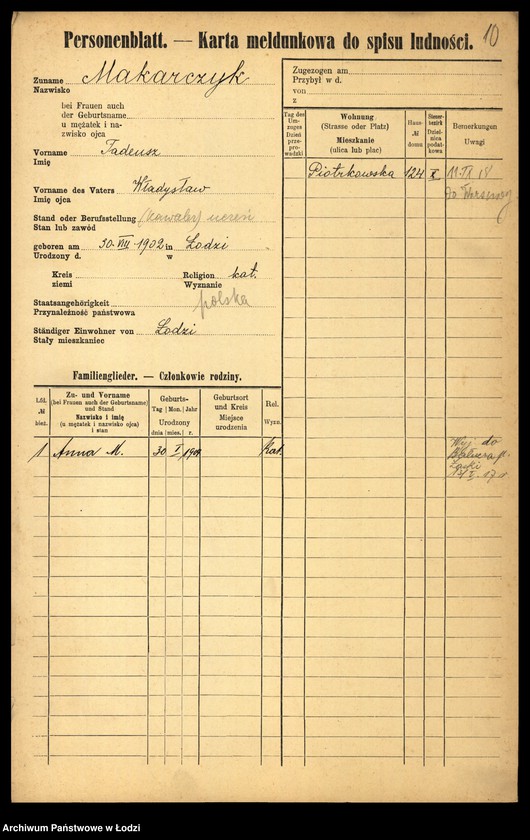 10
Personenblatt. — Karta meldunkowa do spisu ludności.
Zuname Makarczyk
Nazwisko
bei Frauen auch
der Geburtsname
u mężatek i na-
zwisko ojca
Vorname Tadeusz
Imię
Vorname des Vaters Władysław
Imię ojca
Stand oder Berufsstellung (kawaler) uczeń
Stan lub zawód
geboren am 30 VIII 1902 in Łodzi
Urodzony d. w
Kreis Religion kat.
ziemi Wyznanie
Staatsangehörigkeit polska
Przynależność państwowa
Ständiger Einwohner von Łodzi
Stały mieszkaniec
Zugezogen am
Przybył w d.
von
z
Tag des Um-zuges Dzień prze-pro-wadzki
Wohnung
(Strasse oder Platz)
Mieszkanie
(ulica lub plac)
Haus-
№
domu
Steuer-bezirk Dziel-nica podat-kowa.
Bemerkungen
Uwagi
Piotrkowska 124 X 11 IX 18
do Warszawy
Familienglieder. — Członkowie rodziny.
Lfd.
№
bież.
Zu- und Vorname
(bei Frauen auch der Geburtsname)
und Stand
Nazwisko i imię
(u mężatek i nazwisko ojca)
i stan
Geburts-
Tag Mon. Jahr
Urodzony
dnia mies. r.
Geburtsort
und Kreis
Miejsce
urodzenia
Rel.
Wyzn.
1 Anna M. 30 I Kat.
do
Archiwum Państwowe w Łodzi